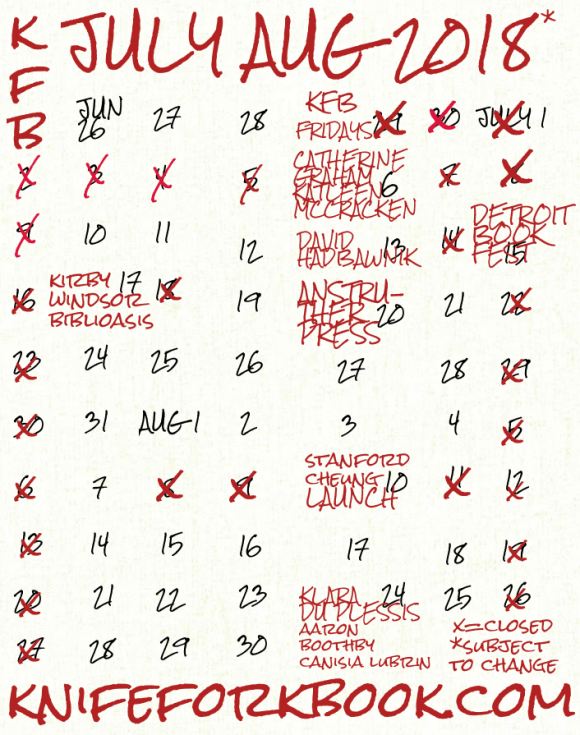 KFB
JULY AUG 2018*
JUN 26 27 28
KFB
FRIDAYS 29 30 JULY 1
2 3 4 5
CATHERINE
GRAHAM
KATLEEN 6
MCCRACKEN
7 8
9 10 11 12
DAVID 13
HADBAWNIK
14
DETROIT
BOOK
FEST 15
16
KIRBY 17
WINDSOR
BIBLIOASIS
18 19
ANSTRU-
THER 20
PRESS
21 22
23 24 25 26 27 28 29
30 31 AUG 1 2 3 4 5
6 7 8 9
STANFORD
CHEUNG 10
LAUNCH
11 12
13 14 15 16 17 18 19
20 21 22 23
KLARA 24
DU PLESSIS
AARON
BOOTHBY
CANISIA LUBRIN
25 26
27 28 29 30
X=CLOSED
*SUBJECT
TO CHANGE
KNIFEFORKBOOK.COM